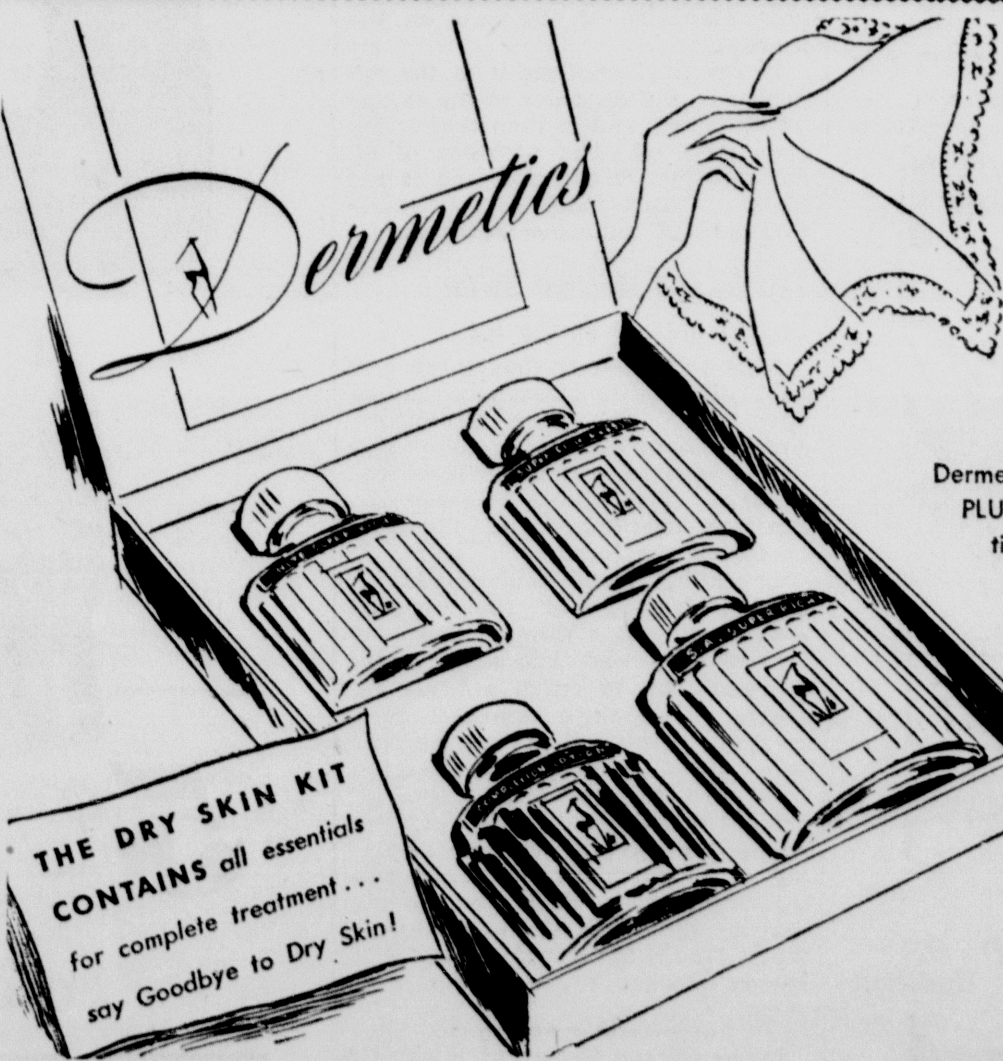 Dermetics
Derme
PLU
ti
S.A. SUPER RICH
THE DRY SKIN KIT
CONTAINS all essentials
for complete treatment...
say Goodbye to Dry Skin!